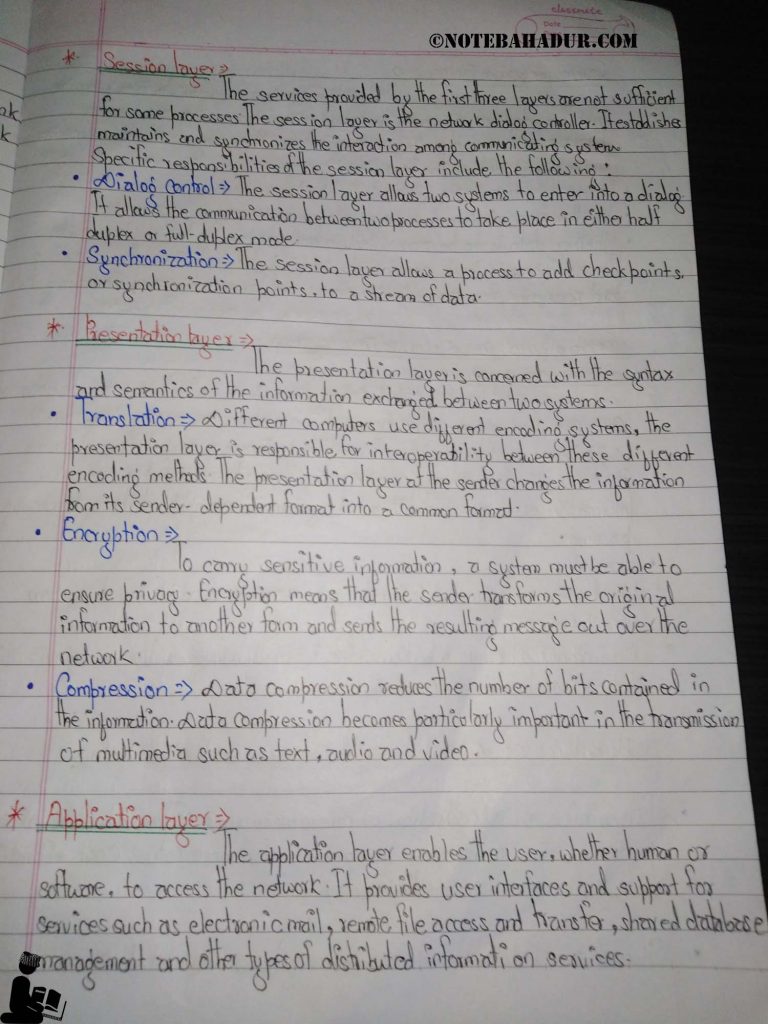 classmate
Date
©NOTEBAHADUR.COM
* Session layer ⇒
The services provided by the first three layers are not sufficient
for some processes The session layer is the network dialog controller. It establishes
maintains and synchronizes the interaction among communicating system
Specific responsibilities of the session layer include the following :
• Dialog control ⇒ The session layer allows two systems to enter into a dialog
It allows the communication between two processes to take place in either half
duplex or full-duplex mode.
• Synchronization ⇒ The session layer allows a process to add checkpoints,
or synchronization points, to a stream of data.
* Presentation layer ⇒
The presentation layer is concerned with the syntax
and semantics of the information exchanged between two systems.
• Translation ⇒ Different computers use different encoding systems, the
presentation layer is responsible for interoperability between these different
encoding methods. The presentation layer at the sender changes the information
from its sender-dependent format into a common format.
• Encryption ⇒
To carry sensitive information, a system must be able to
ensure privacy. Encryption means that the sender transforms the original
information to another form and sends the resulting message out over the
network.
• Compression ⇒ Data compression reduces the number of bits contained in
the information. Data compression becomes particularly important in the transmission
of multimedia such as text, audio and video.
* Application layer ⇒
The application layer enables the user, whether human or
software, to access the network. It provides user interfaces and support for
services such as electronic mail, remote file access and transfer, shared database
management and other types of distributed information services.